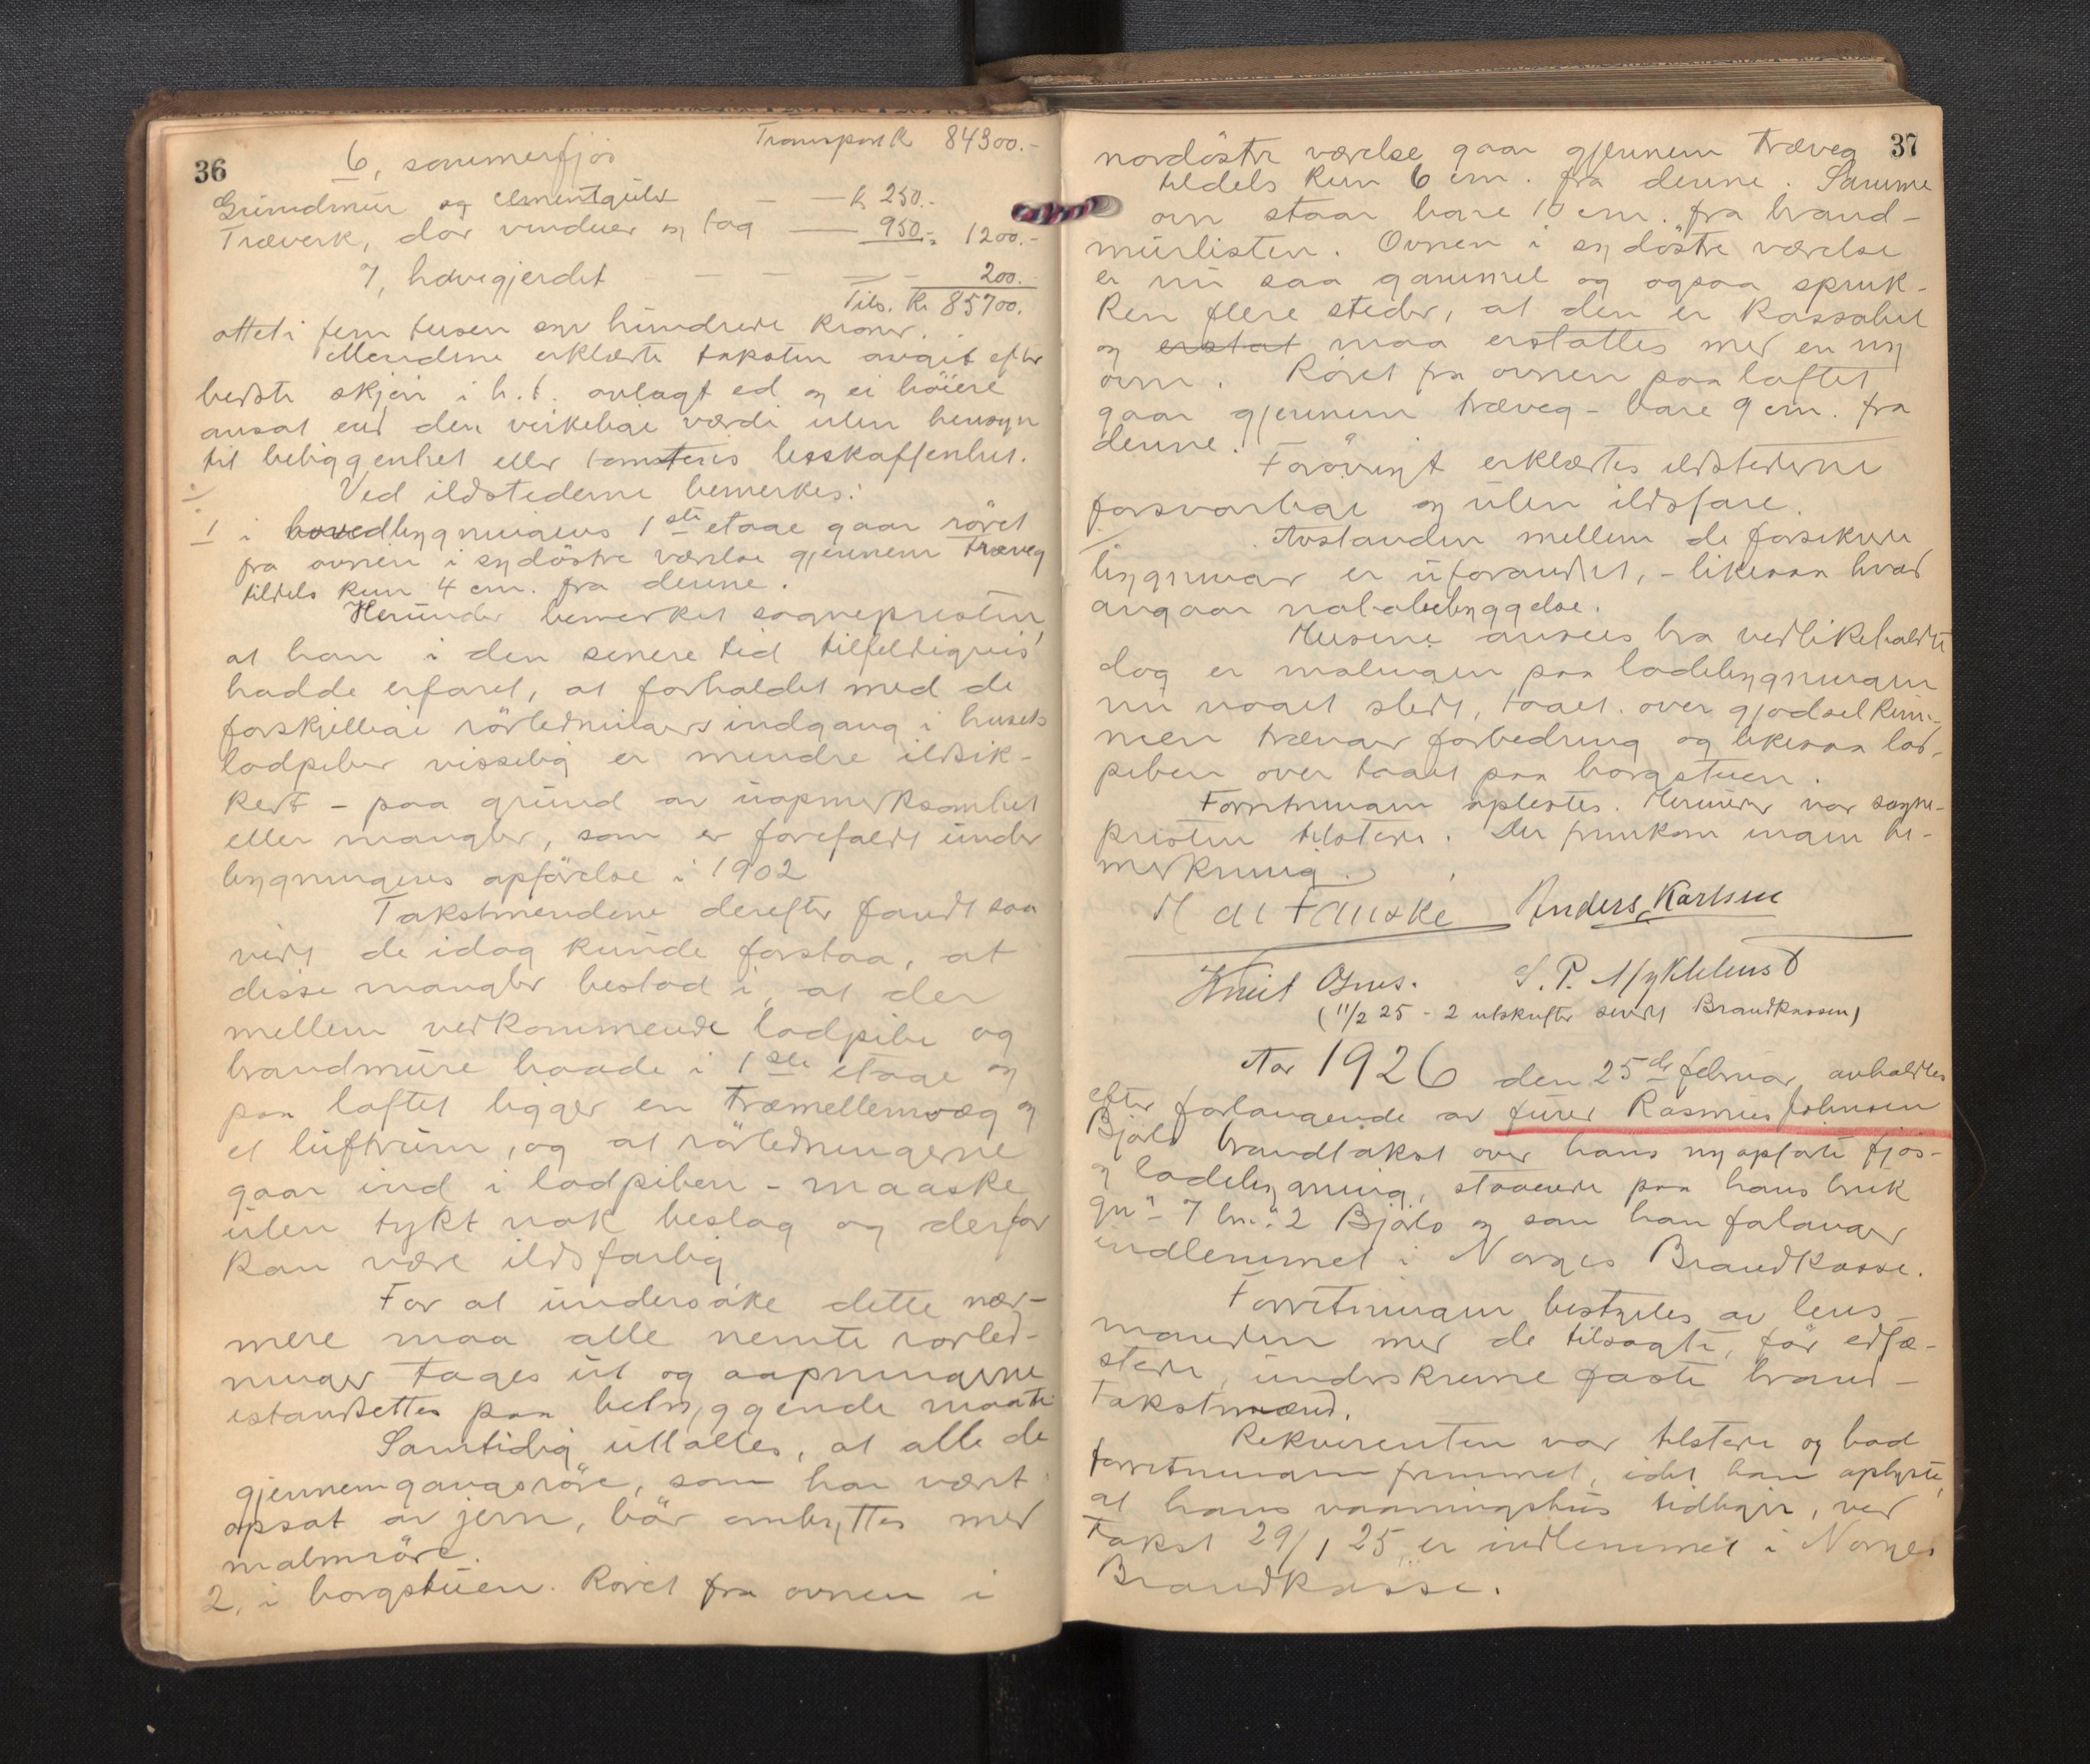 36
Transport Kr 84300.-
6, sommerfjøs
Grundmur og cementgulv — — kr 250.-
Træverk, dør vinduer og tag — 950.- 1200.-
7, havegjerdet — — — 200.-
Tils. Kr 85700.
otteti fem tusen syv hundrede kroner.
Mendene erklærte taksten avgit efter
bedste skjøn i h.t. avlagt ed og ei høiere
ansat end den virkelige værdi uten hensyn
til beliggenhet eller tomtens beskaffenhet.
Ved ildstederne bemerkes:
1 i hovedbygningens 1ste etage gaar røret
fra ovnen i sydöstre værelse gjennem træveg
tildels kun 4 cm. fra denne.
Herunder bemerket sognepresten,
at han i den senere tid tilfeldigvis
hadde erfaret, at forholdet med de
forskjellige rörledningers indgang i husets
lodpiber visselig er mindre ildsik-
kert - paa grund av uopmerksomhet
eller mangler, som er forefaldt under
bygningens opförelse i 1902
Takstmendene derefter fandt saa
vidt de idag kunde forstaa, at
disse mangler bestod i, at der
mellem vedkommende lodpibe og
brandmure baade i 1ste etage og
paa loftet ligger en træmellemvæg og
et luftrum, og at rörledningerne
gaar ind i lodpiben - maaske
uten tykt nok beslag og derfor
kan være ildsfarlig
For at undersøke dette nær-
mere maa alle nemte rørled-
ninger tages ut og aapningerne
istandsettes paa betryggende maate
Samtidig uttaltes, at alle de
gjennemgangsröre, som har vært
opsat av jern, bör ombyttes med
malmröre.
2, i borgstuen. Röret fra ovnen i
37
nordöstre værelse gaar gjennem træveg
tildels kun 6 cm. fra denne. Samme
ovn staar bare 10 cm. fra brand-
murlisten. Ovnen i sydöstre værelse
er nu saa gammel og ogsaa spruk-
ken flere steder, at den er kassabel
og erstat maa erstattes med en ny
ovn. Röret fra ovnen paa loftet
gaar gjennem træveg - bare 9 cm. fra
denne.
Forövrigt erklærtes ildstederne
forsvarlige og uten ildsfare.
Avstanden mellem de forsikrede
bygninger er uforandret, - likesaa hvad
angaar nabobebyggelse.
Husene ansees bra vedlikeholdt
dog er malingen paa ladebygningen
nu noget slett, taget over gjødselkum-
men trænger forbedring og likesaa lod-
piben over taget paa borgstuen.
Forretningen oplestes. Herunder var sogne-
presten tilstede. Der fremkom ingen be-
merkning.
Anders Karlsen
Knut S. P. Myklebust
(11/2 25 - 2 utskrifter sendt Brandkassen)
Aar 1926 den 25de februar avholdtes
efter forlangende av furer Rasmus Johnsen
Bjölo brandtakst over hans nyopförte fjös-
og ladebygning, staaende paa hans bruk
gn. 7 br. 2 Bjölo og som han forlanger
indlemmet i Norges Brandkasse.
Forretningen bestyres av lens-
manden med de tilsagte, för edfæ-
stede, underskrevne faste brand-
takstmænd.
Rekvirenten var tilstede og bad
forretningen fremmet, idet han oplyste,
at hans vaaningshus tidligere, ved
takst 29/1 25 er indlemmet i Norges
Brandkasse.